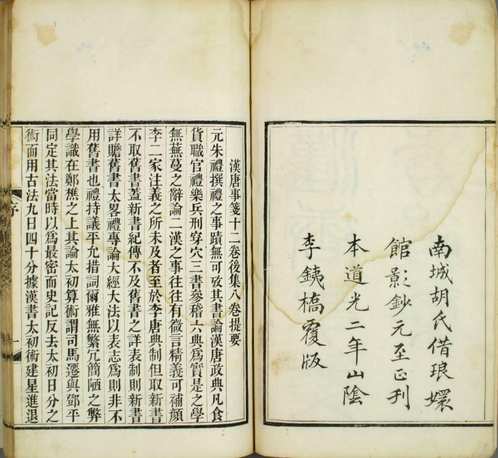 南城胡氏借瑯嬛
館影鈔元至正刊
本道光二年山陰
李銕橋覆版
漢唐事箋十二卷後集八卷提要
元朱禮撰禮之事蹟無可攷其書論漢唐政典凡食
貨職官禮樂兵刑穿穴三書參稽六典爲實是之學
無蕪蔓之辭論二漢之事往往有微言精義可補顏
李二家注義之所未及者至於李唐典制但取新書
不取舊書蓋新書紀傳不及舊書而表志爲則新書
詳贍舊書太畧禮專論大經大法以表志爲則非不
用舊書也禮持議平允措詞爾雅無繁冗簡陋之弊
學識在鄭樵之上其論太初算術謂司馬遷與鄧平
同定其法當時以爲最密而史記反去太初日分之
術而用古法九日四十分據漢書太初術建星進退
序
一